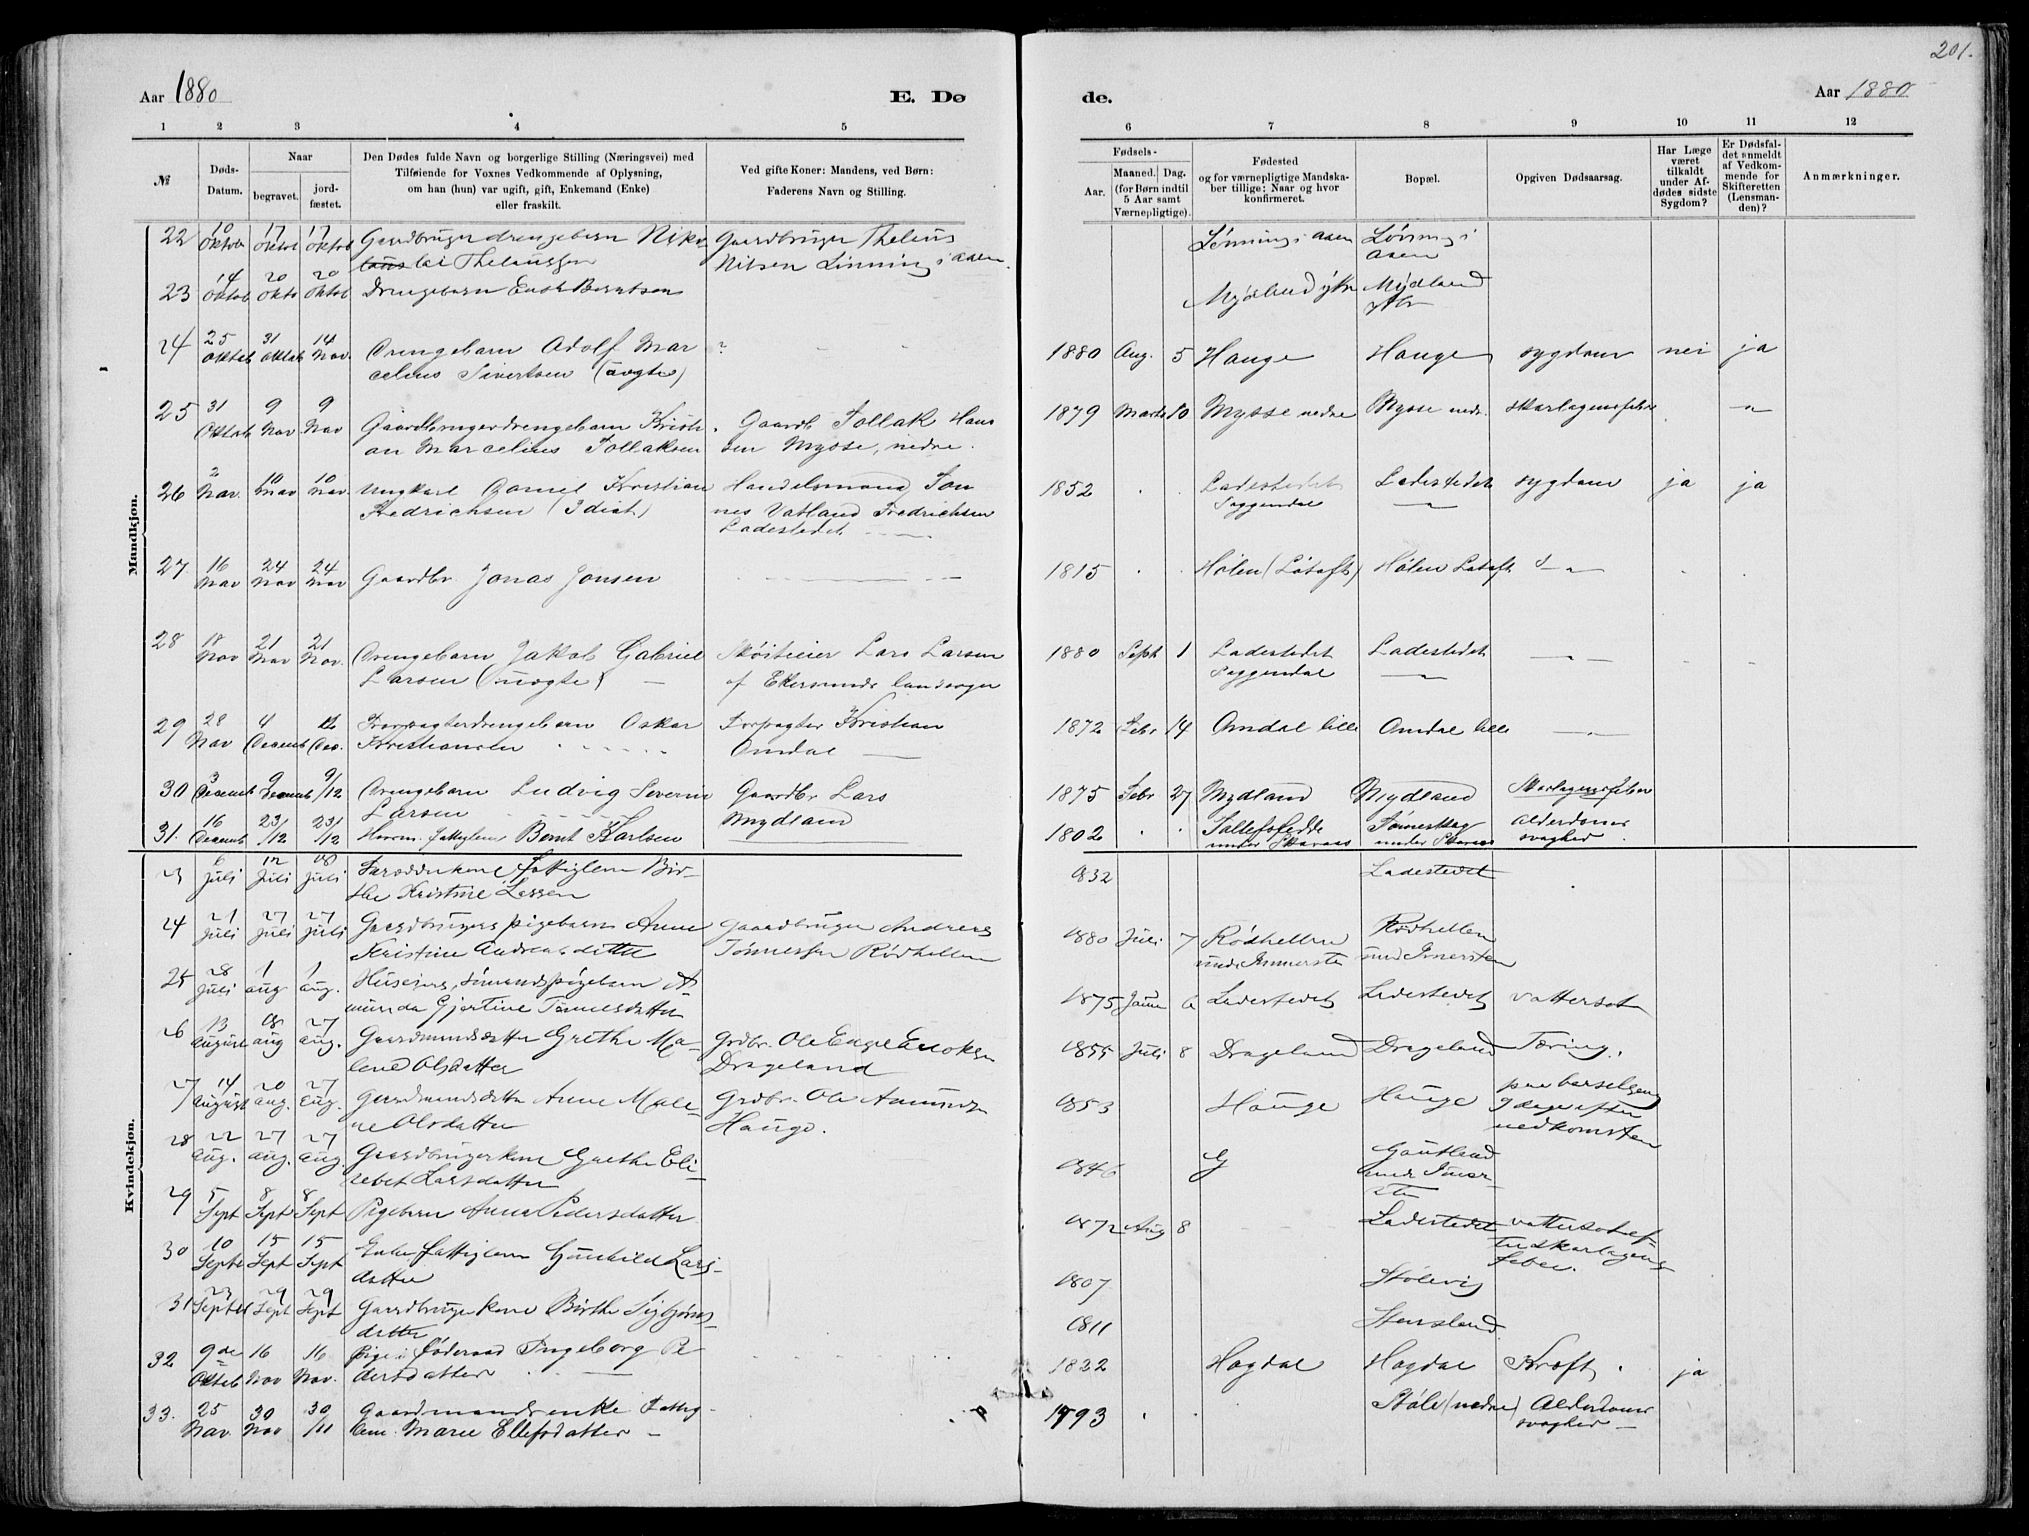 201.
Aar 1880
E. Dø
de.
Aar 1880
1 2 3 4 5
6 7 8 9 10 11 12
№
Døds-
Datum.
Naar
begravet.
jord-
fæstet.
Den Dødes fulde Navn og borgerlige Stilling (Næringsvei) med
Tilføiende for Voxnes Vedkommende af Oplysning,
om han (hun) var ugift, gift, Enkemand (Enke)
eller fraskilt.
Ved gifte Koner: Mandens, ved Børn:
Faderens Navn og Stilling.
Fødsels-
Aar.
Maaned. Dag.
(for Børn indtil
5 Aar samt
Værnepligtige).
Fødested
og for værnepligtige Mandska-
ber tillige: Naar og hvor
konfirmeret.
Bopæl.
Opgiven Dødsaarsag.
Har Læge
været
tilkaldt
under Af-
dødes sidste
Sygdom?
Er Dødsfal-
det anmeldt
af Vedkom-
mende for
Skifteretten
(Lensman-
den)?
Anmærkninger.
Mandkjøn.
22 10 Oktob 17 Oktob 17 Oktob Gaardbruger drengebarn Niko Gaardbruger Theleus
lai Theleussen Nilsen Lønning i Aasen
Lønning i Aasen Lønning i
Aasen
23 14 Oktob 20 Okto 20 Oktob Drengebarn Berntsen
Mydland ytre Mydland
ytre
24 25 Oktob 31 Oktob 14 Nov. Drengebarn Adolf Mar ?
celius Sivertsen (uægte)
1880 Aug. 5 Hauge Hauge sygdom nei ja
25 31 Oktob 9 Nov 9 Nov Gaardbrugerdrengebarn Kristi Gaardb Tollak Han
an Marcelius Tollaksen sen Mysse, nedre.
1879 Marts 10 Mysse nedre Mysse nedr. skarlagensfeber
26 2 Nov. 10 Nov 10 Nov. Ungkarl Kristian Handelsmand Ton
Fredrichsen nes Vatland Fredrichsen
Ladestedet
1852 Ladestedet Ladestedet sygdom ja ja
Soggendal
27 16 Nov 24 Nov 24 Nov Gaardbr Jonas Jonsen
1815 Hølen Hølen
28 18 Nov 21 Nov 21 Nov. Drengebarn Jakob Gabriel Skøiteeier Lars Larsen
Larsen (uægte) af Ekersunds landsogn
1880 Sept 1 Ladestedet Ladestedet
Soggendal
29 28 Nov 4 Decemb 12 Dec. Forpagterdrengebarn Oskar Forpagter Kristian
Kristiansen Omdal
1872 Febr 14 Omdal lille Omdal lille
30 3 Decemb 9 Decemb 9/12 Drengebarn Ludvig Severin Gaardbr Lars
Larsen Mydland
1875 Febr 27 Mydland Mydland Skarlagensfeber
31. 16 Decemb 23/12 23/12 fattiglem Bernt Karlsen
1802 Alderdoms
under Skaraas under Skaraas svaghed
Kvindekjøn.
6 Juli 12 Juli 18 Juli fattiglem Bir-
the Kristine
1832 Ladestedet
24 21 Juli 27 Juli 27 Juli Gaardbrugers pigebarn Anne Gaardbruger Andreas
Kristine Andreasdatter Tønnessen Rødhellen
1880 Juli 7 Rødhellen Rødhellen
25 28 Juli 1 aug 1 aug. A-
munda Gjertine Tønnesdatter
1875 Janu 6 Ladestedet Ladestedet vattersot
26 13 August 18 aug 27 aug. Gaardmandsdatter Grethe Ma- Grdbr. Ole Enok
lene Olsdatter Drageland
1855 Juli 8 Drageland Drageland Tæring.
27 14 August 20 aug. 27 aug. Gaardmandsdatter Anne Male- Grdbr. Ole Aanund
ne Olsdatter Hauge.
1853 Hauge Hauge paa barselseng
9 dage efter
nedkomsten
28 22 Aug. 27 aug. 27 aug. Gaardbrugerkone Grethe Eli-
sebet Larsdatter
1846 G
29 5 Sept 8 Sept 8 Sept Pigebarn Anna Pedersdatter
1872 Aug 8 Ladestedet vattersot ef-
ter skarlagens
feber.
30 10 Septb 15 Sept 15 Sept Enke fattiglem Gunhild Lars-
datter
1807 Stølevig
31 23 Septb 29 Sept 29 Sept Gaardbrugerkone Birthe Sigbjørns-
datter
1811 Stensland
32 9de Oktob 16 Nov 16 Nov. Pige i Føderaad Ingeborg Pe-
dersdatter
1832 Hogdal Hogdal Kræft. ja
33. 25 Nov. 30 Nov 30/11 Gaardmandsenke Fattig-
lem. Marie Ellefsdatter
1793 Støle (nedre) Alderdoms
svaghed